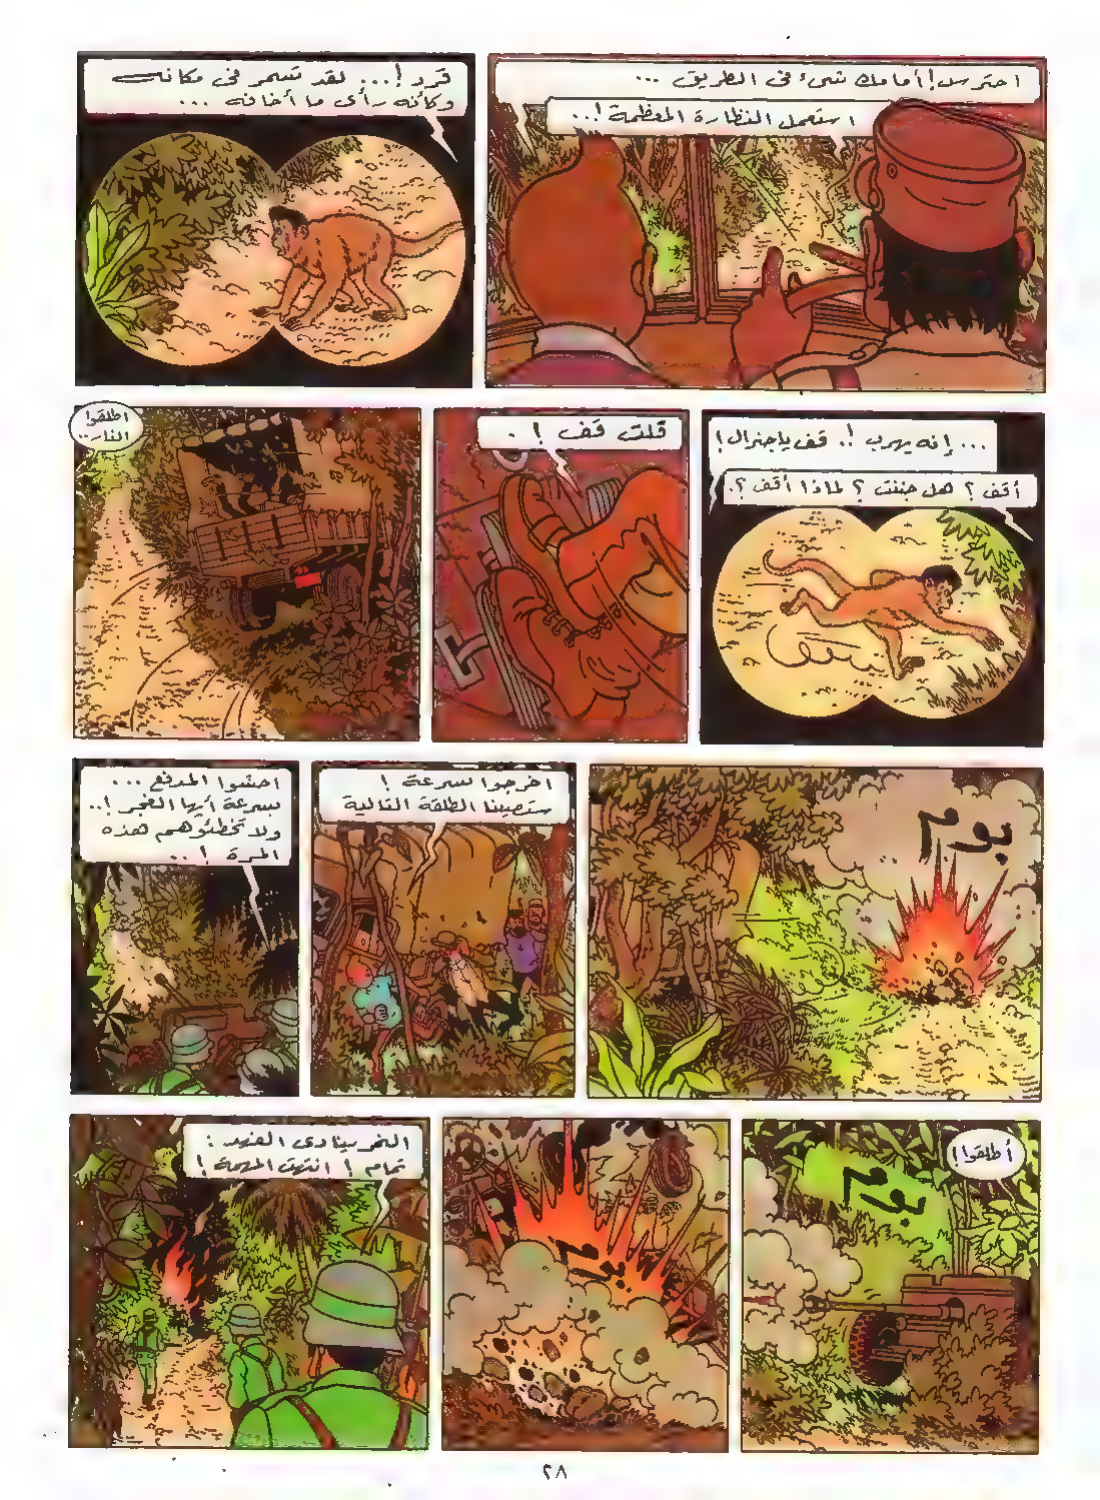 احترس! أمامك شىء فى الطريق ...
استعمل النظارة المعظمة!..
قرد!... لقد تسمر فى مكانه
وكأنه رأى ما أخافه ...
... إنه يهرب!. قف ياجنرال!
أقف؟ هل جننت؟ لماذا أقف؟.
قلت قف!.
اطلقوا
النار..
بوم
اخرجوا بسرعة!
ستصيبنا الطلقة التالية
احشوا المدفع ...
بسرعة أيها الغجر!..
ولا تخطئوهم هذه
المرة!..
أطلقوا!
بوم
بوم
النمر ينادى الفهد:
تمام! انتهت المهمة!
٢٨